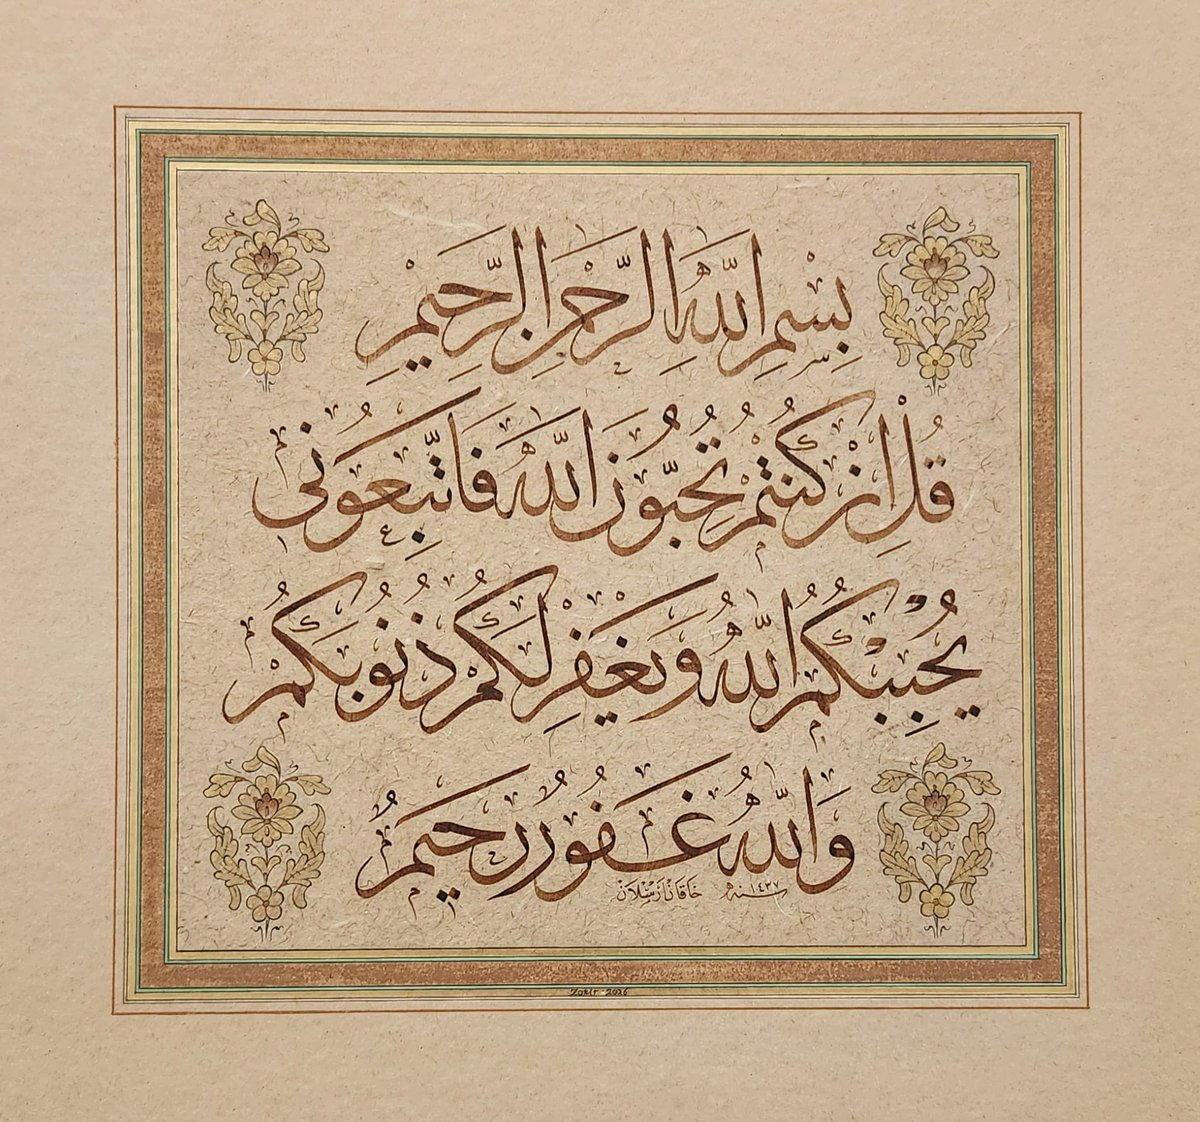 بِسْمِ اللَّهِ الرَّحْمَنِ الرَّحِيمِ
قُلْ اِنْ كُنْتُمْ تُحِبُّونَ اللَّهَ فَاتَّبِعُونِي
يُحْبِبْكُمُ اللَّهُ وَيَغْفِرْ لَكُمْ ذُنُوبَكُمْ
وَاللَّهُ غَفُورٌ رَحِيمٌ
سنه ١٤٣٧ خاقان ارسلان
Zakir 2026